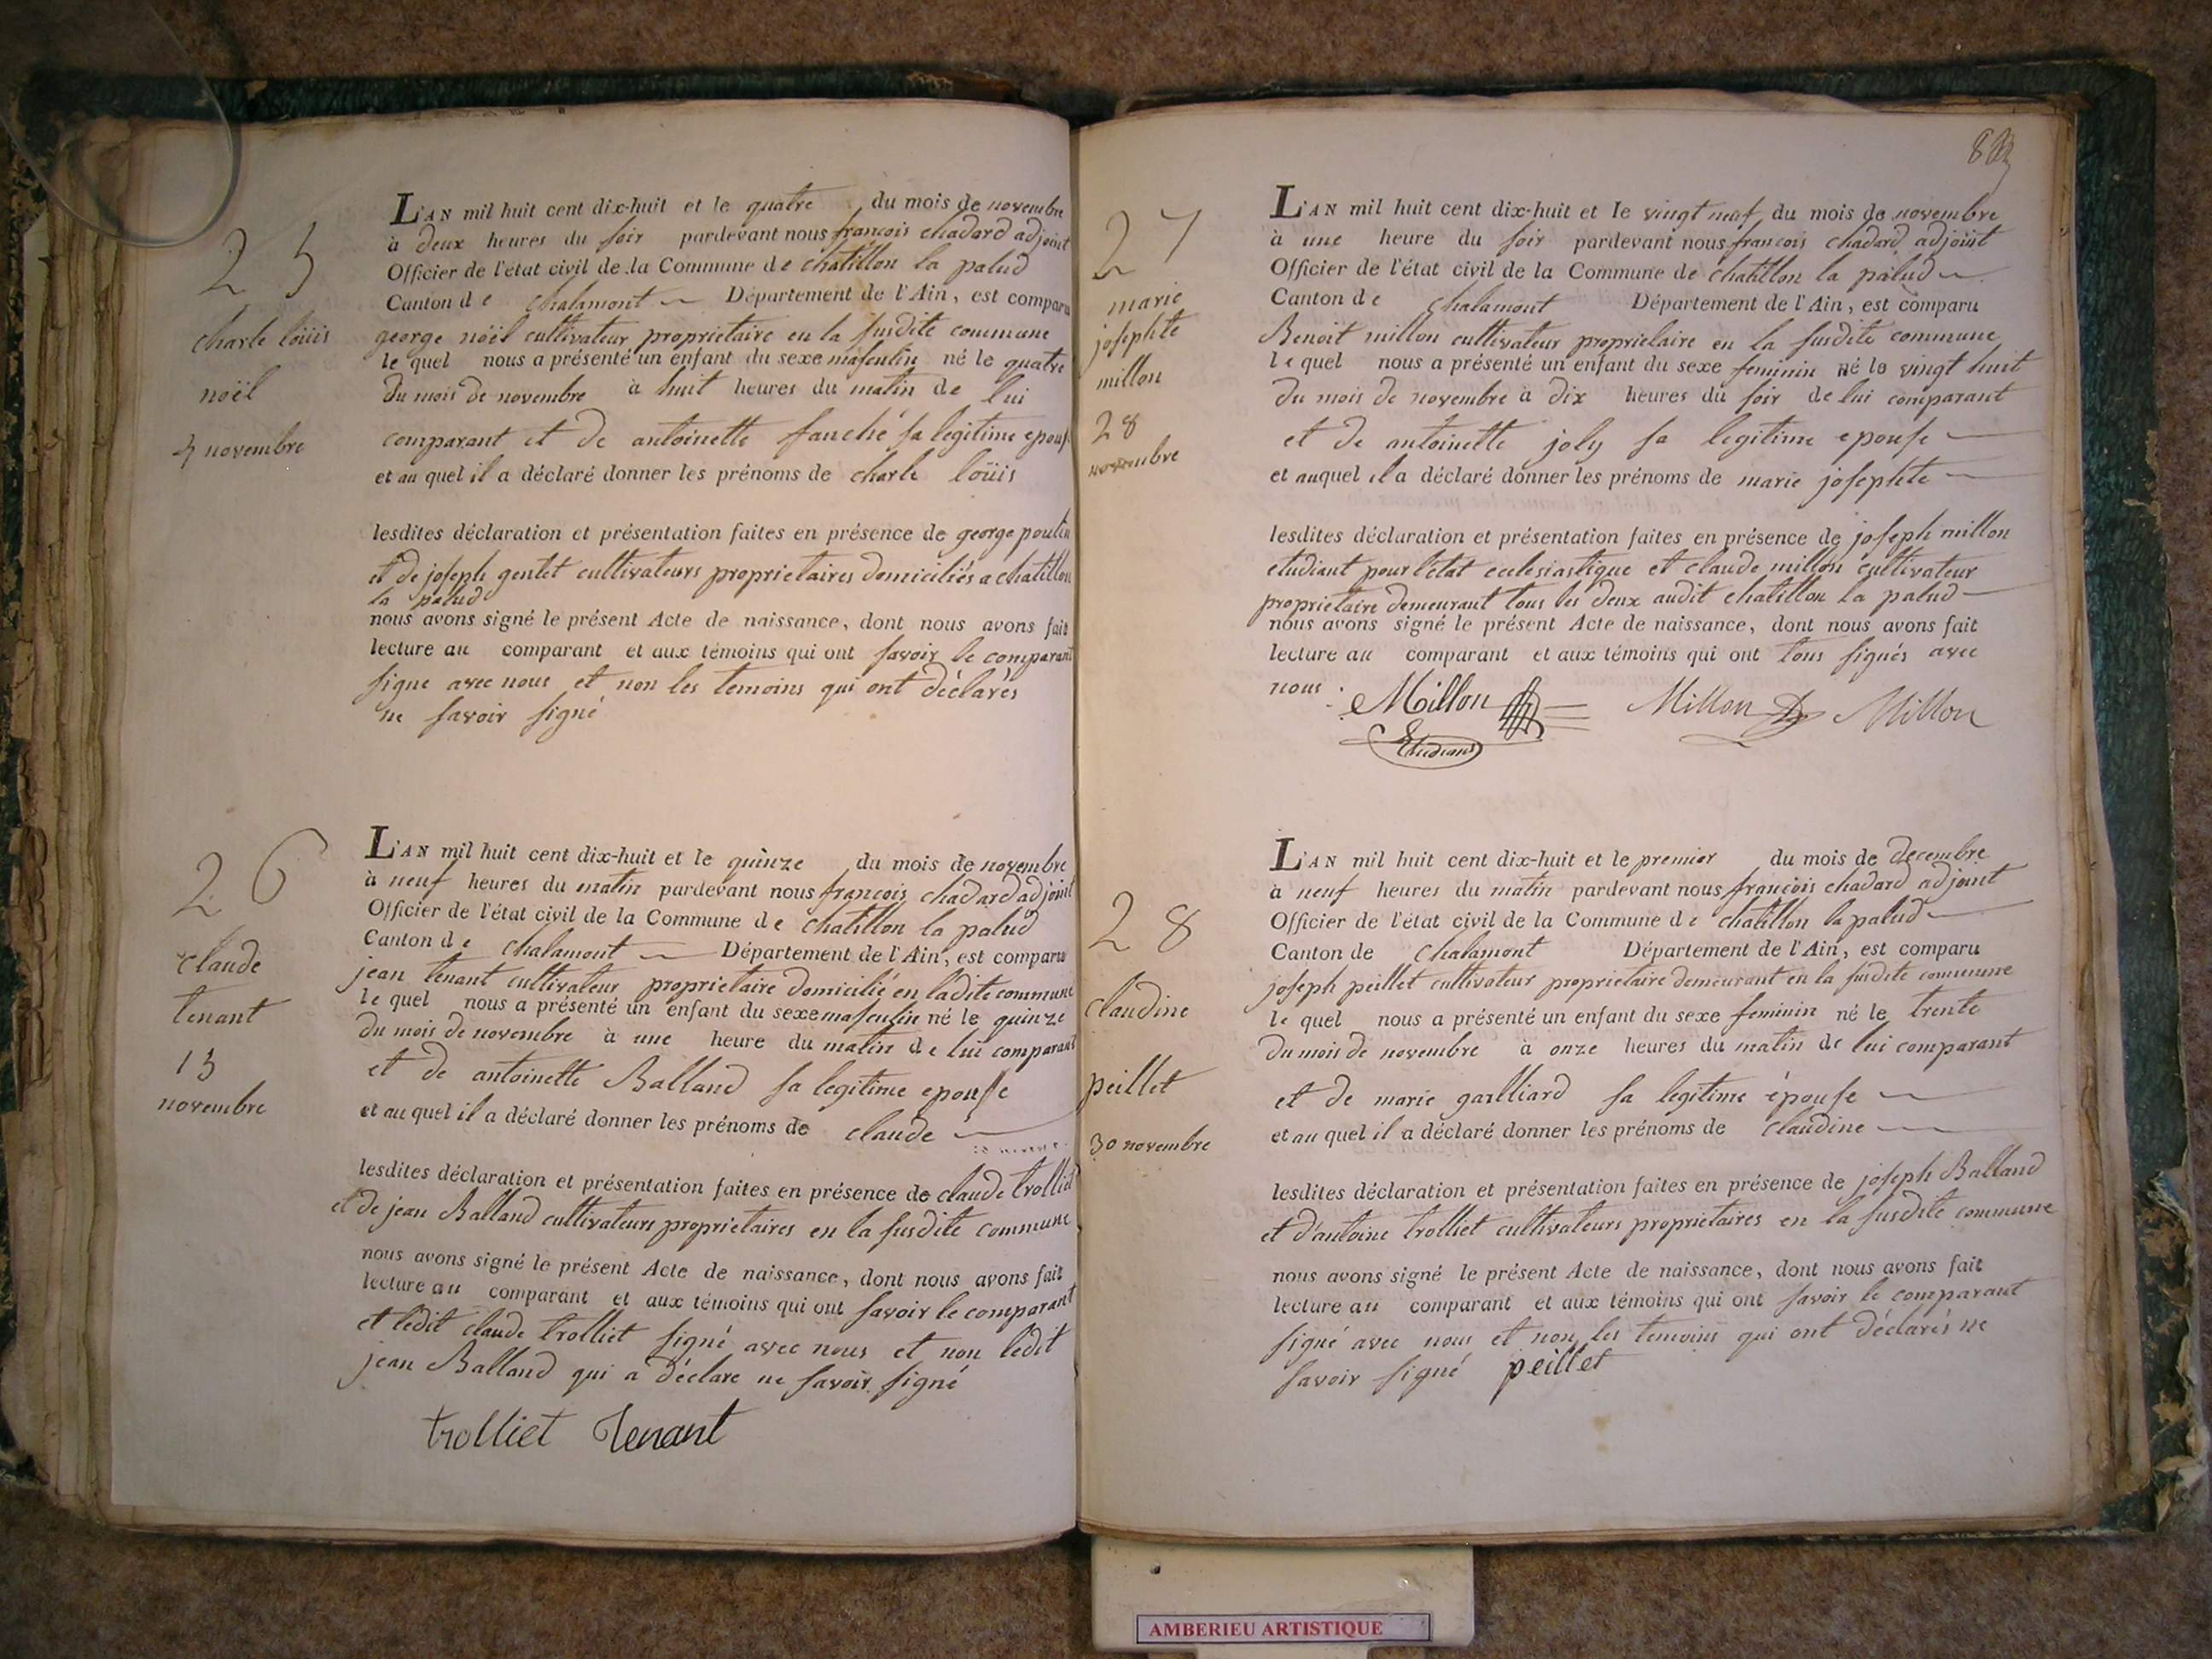 25
charle loüis
noël
4 novembre
L'AN mil huit cent dix-huit et le quatre du mois de novembre
à deux heures du soir pardevant nous françois chadard adjoint
Officier de l'état civil de la Commune de chatillon la palud
Canton de chalamont Département de l'Ain, est comparu
george noël cultivateur proprietaire en la susdite commune
le quel nous a présenté un enfant du sexe masculin né le quatre
du mois de novembre à huit heures du matin de lui
comparant et de antoinette fanché sa legitime epouse
et au quel il a déclaré donner les prénoms de charle loüis
lesdites déclaration et présentation faites en présence de george poulin
et de joseph gentet cultivateurs proprietaires domiciliés a chatillon
la palud
nous avons signé le présent Acte de naissance, dont nous avons fait
lecture au comparant et aux témoins qui ont savoir le comparant
signe avec nous et non les temoins qui ont déclarés
ne savoir signé
26
claude
tenant
15
novembre
L'AN mil huit cent dix-huit et le quinze du mois de novembre
à neuf heures du matin pardevant nous françois chadard adjoint
Officier de l'état civil de la Commune de chatillon la palud
Canton de chalamont Département de l'Ain, est comparu
jean tenant cultivateur proprietaire domicilié en ladite commune
le quel nous a présenté un enfant du sexe masculin né le quinze
du mois de novembre à une heure du matin de lui comparant
et de antoinette Balland sa legitime epouse
et au quel il a déclaré donner les prénoms de claude
lesdites déclaration et présentation faites en présence de claude trolliet
et de jean Balland cultivateurs proprietaires en la susdite commune
nous avons signé le présent Acte de naissance, dont nous avons fait
lecture au comparant et aux témoins qui ont savoir le comparant
et ledit claude trolliet signé avec nous et non ledit
jean Balland qui a déclare ne savoir signé
trolliet Tenant
27
marie
josephte
millon
28
novembre
L'AN mil huit cent dix-huit et le vingt neuf du mois de novembre
à une heure du soir pardevant nous francois chadard adjoint
Officier de l'état civil de la Commune de chatillon la palud
Canton de chalamont Département de l'Ain, est comparu
Benoit millon cultivateur proprietaire en la susdite commune
le quel nous a présenté un enfant du sexe feminin né le vingt huit
du mois de novembre à dix heures du soir de lui comparant
et de antoinette joly sa legitime epouse
et auquel il a déclaré donner les prénoms de marie josephte
lesdites déclaration et présentation faites en présence de joseph millon
etudiant pour l'état eclesiastique et claude millon cultivateur
proprietaire demeurant tous les deux audit chatillon la palud
nous avons signé le présent Acte de naissance, dont nous avons fait
lecture au comparant et aux témoins qui ont tous signés avec
nous. Millon Millon Millon
Etudiant
28
claudine
peillet
30 novembre
L'AN mil huit cent dix-huit et le premier du mois de decembre
à neuf heures du matin pardevant nous françois chadard adjoint
Officier de l'état civil de la Commune de chatillon la palud
Canton de chalamont Département de l'Ain, est comparu
joseph peillet cultivateur proprietaire demeurant en la susdite commune
le quel nous a présenté un enfant du sexe feminin né le trente
du mois de novembre à onze heures du matin de lui comparant
et de marie gailliard sa legitime épouse
et au quel il a déclaré donner les prénoms de claudine
lesdites déclaration et présentation faites en présence de joseph Balland
et d'antoine trolliet cultivateurs proprietaires en la susdite commune
nous avons signé le présent Acte de naissance, dont nous avons fait
lecture au comparant et aux témoins qui ont savoir le comparant
signé avec nous et non les temoins qui ont déclarés ne
savoir signé peillet
AMBERIEU ARTISTIQUE